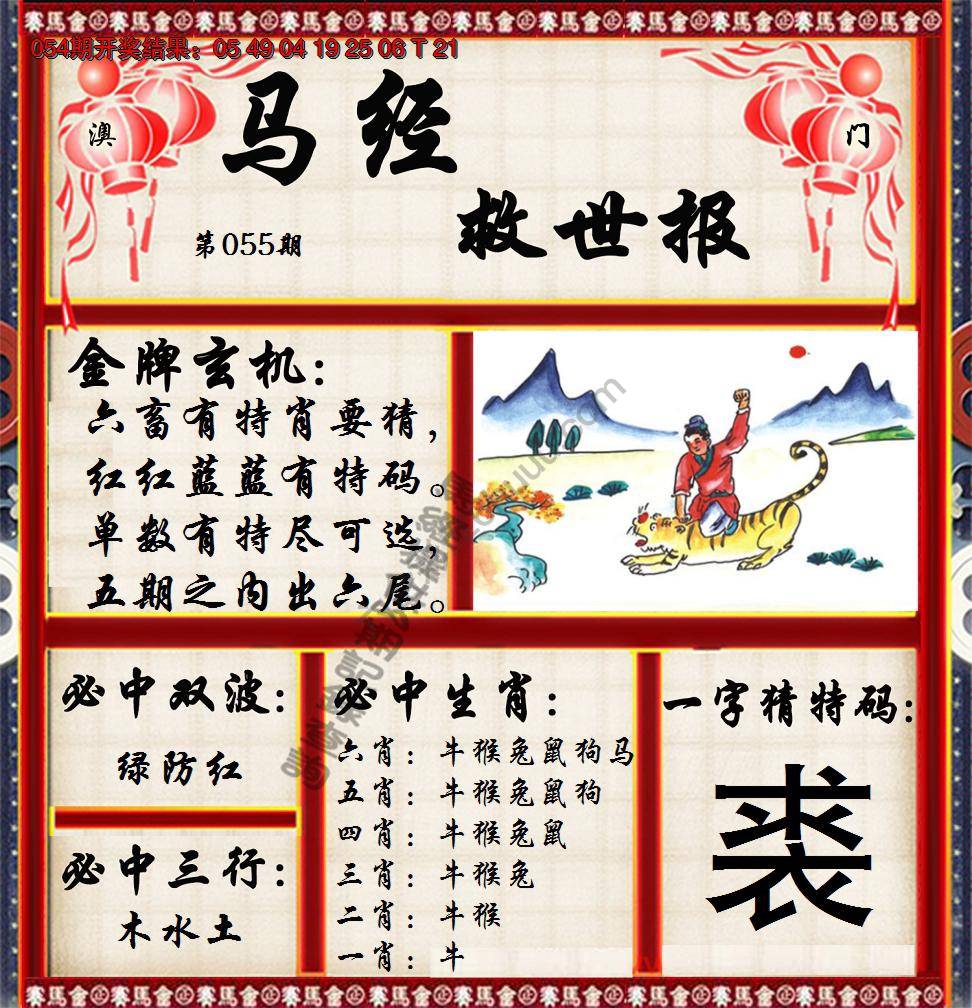 賽馬會 賽馬會 賽馬會 賽馬會 賽馬會 賽馬會 賽馬會 賽馬會 賽馬會
054期开奖结果：05 49 04 19 25 06 T 21
澳 门
马经
救世报
第055期
金牌玄机：
六畜有特肖要猜，
红红蓝蓝有特码。
单数有特尽可选，
五期之内出六尾。
必中双波：
绿防红
必中三行：
木水土
必中生肖：
六肖：牛猴兔鼠狗马
五肖：牛猴兔鼠狗
四肖：牛猴兔鼠
三肖：牛猴兔
二肖：牛猴
一肖：牛
一字猜特码：
裘